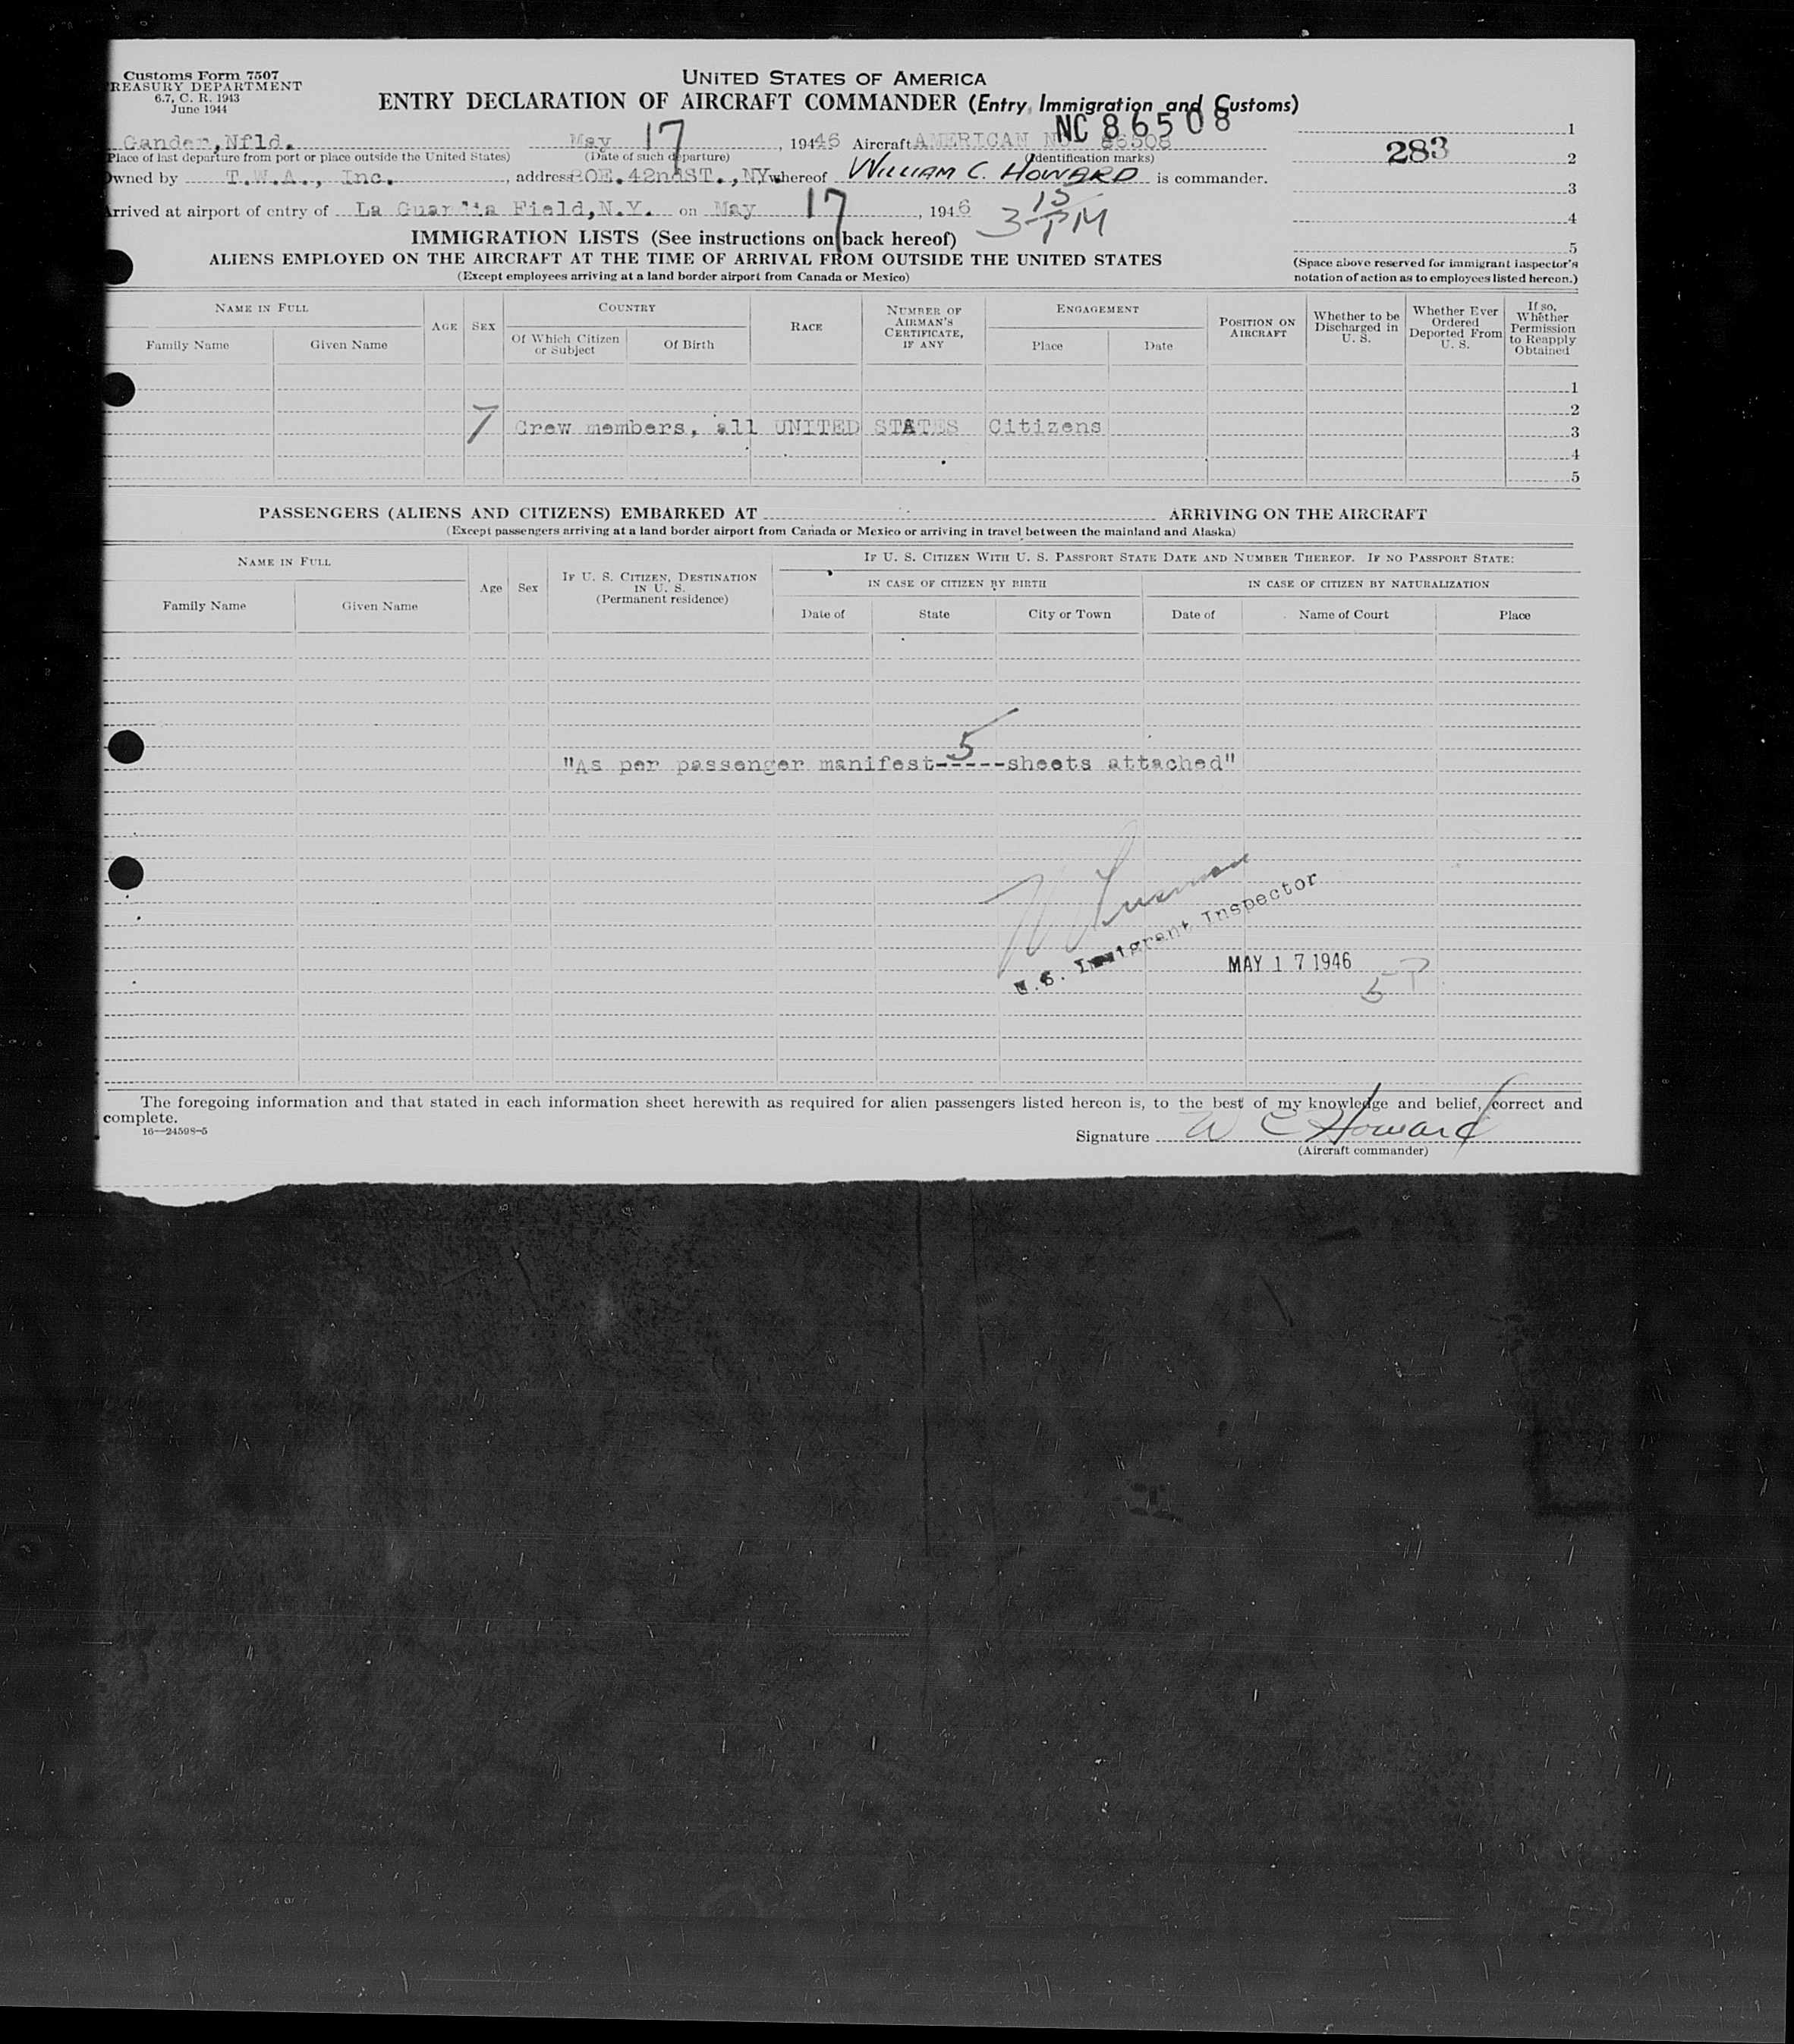 Customs Form 7507
TREASURY DEPARTMENT
6.7, C. R. 1943
June 1944
UNITED STATES OF AMERICA
ENTRY DECLARATION OF AIRCRAFT COMMANDER (Entry, Immigration and Customs)
NC 86508
Gander,Nfld. May 17, 1946 Aircraft AMERICAN NC 86508
(Place of last departure from port or place outside the United States) (Date of such departure) (Identification marks)
Owned by T.W.A., Inc., address 80E.42ndST.,NY. whereof WILLIAM C. HOWARD is commander.
Arrived at airport of entry of La Guardia Field,N.Y. on May 17, 1946 3 15 PM
1
283 2
3
4
5
(Space above reserved for immigrant inspector's
notation of action as to employees listed hereon.)
IMMIGRATION LISTS (See instructions on back hereof)
ALIENS EMPLOYED ON THE AIRCRAFT AT THE TIME OF ARRIVAL FROM OUTSIDE THE UNITED STATES
(Except employees arriving at a land border airport from Canada or Mexico)
NAME IN FULL
Family Name Given Name
AGE SEX
COUNTRY
Of Which Citizen or Subject Of Birth
RACE
NUMBER OF AIRMAN'S CERTIFICATE, IF ANY
ENGAGEMENT
Place Date
POSITION ON AIRCRAFT
Whether to be Discharged in U. S.
Whether Ever Ordered Deported From U. S.
If so, Whether Permission to Reapply Obtained
1
2
7 Crew members, all UNITED STATES Citizens 3
4
5
PASSENGERS (ALIENS AND CITIZENS) EMBARKED AT ARRIVING ON THE AIRCRAFT
(Except passengers arriving at a land border airport from Canada or Mexico or arriving in travel between the mainland and Alaska)
NAME IN FULL
Family Name Given Name
Age Sex
IF U. S. CITIZEN, DESTINATION IN U. S. (Permanent residence)
IF U. S. CITIZEN WITH U. S. PASSPORT STATE DATE AND NUMBER THEREOF. IF NO PASSPORT STATE:
IN CASE OF CITIZEN BY BIRTH IN CASE OF CITIZEN BY NATURALIZATION
Date of State City or Town Date of Name of Court Place
"As per passenger manifest-5-sheets attached"
U.S. Immigrant Inspector
MAY 17 1946
5 P
The foregoing information and that stated in each information sheet herewith as required for alien passengers listed hereon is, to the best of my knowledge and belief, correct and
complete.
16—24598-5
Signature W C Howard
(Aircraft commander)